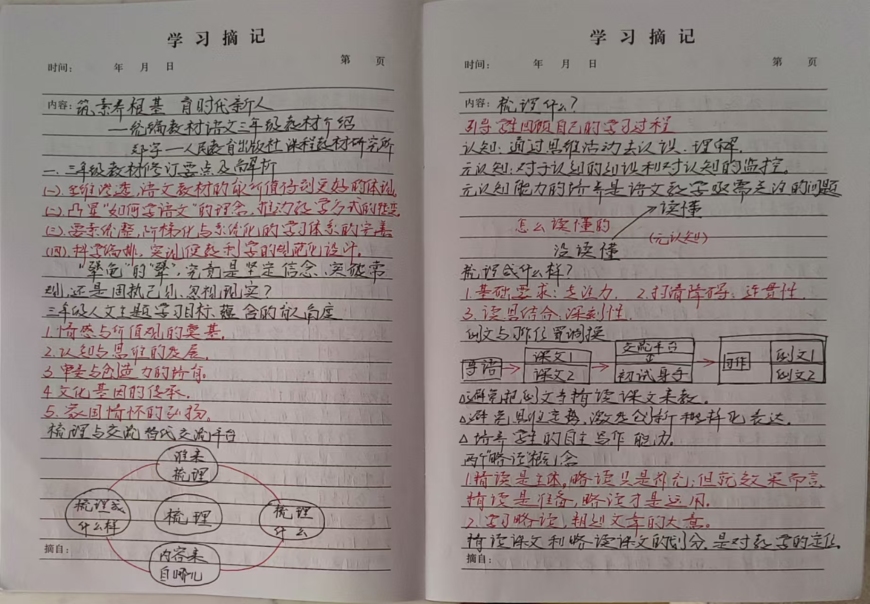 学习摘记
时间： 年 月 日 第 页
内容：筑素养根基 育时代新人
——统编教材语文三年级教材介绍
邓宇——人民教育出版社课程教材研究所
一、三年级教材修订要点及简析
(一)、全面落选，语文教材的育人价值得到更好的体现
(二)、凸显"如何学语文"的理念，推动教学方式的转变
(三)、要素统整，阶梯化与系统化的学习体系的完善
(四)、科学编排，突出便教利学的规范化设计。
"犟龟"的"犟"，究竟是坚定信念、突破常
规，还是固执己见、忽视现实？
三年级人文主题学习目标，蕴含的育人角度
1.情感与价值观的奠基。
2.认知与思维的发展。
3.审美与创造力的培育。
4.文化基因的传承。
5.家国情怀的弘扬。
梳理与交流替代交流平台
谁来
梳理
梳理成
什么样
梳理
梳理
什么
内容来
自哪儿
摘自：
学习摘记
时间： 年 月 日 第 页
内容：梳理什么？
引导学生回顾自己的学习过程
认知：通过思维活动去认识、理解。
元认知：对于认知的认识和对认知的监控。
元认知能力的培养是语文教学非常关注的问题
读懂
怎么读懂的
(元认知)
没读懂
梳理成什么样？
1.基础要求：专注力。 2.扫清障码：连贯性。
3.读思结合：深刻性。
例文与习作位置调换
导语
课文1
课文2
交流平台
初试身手
习作
例文1
例文2
△避免把例文当精读课文来教。
△避免思维定势，激发创新和多样化表达。
△培养学生的自主写作能力。
两个略读概念
1.精读是主体，略读只是补充；但就效果而言，
精读是准备，略读才是运用。
2.学习略读，粗知文章的大意。
精读课文和略读课文的划分，是对教学的定位
摘自：